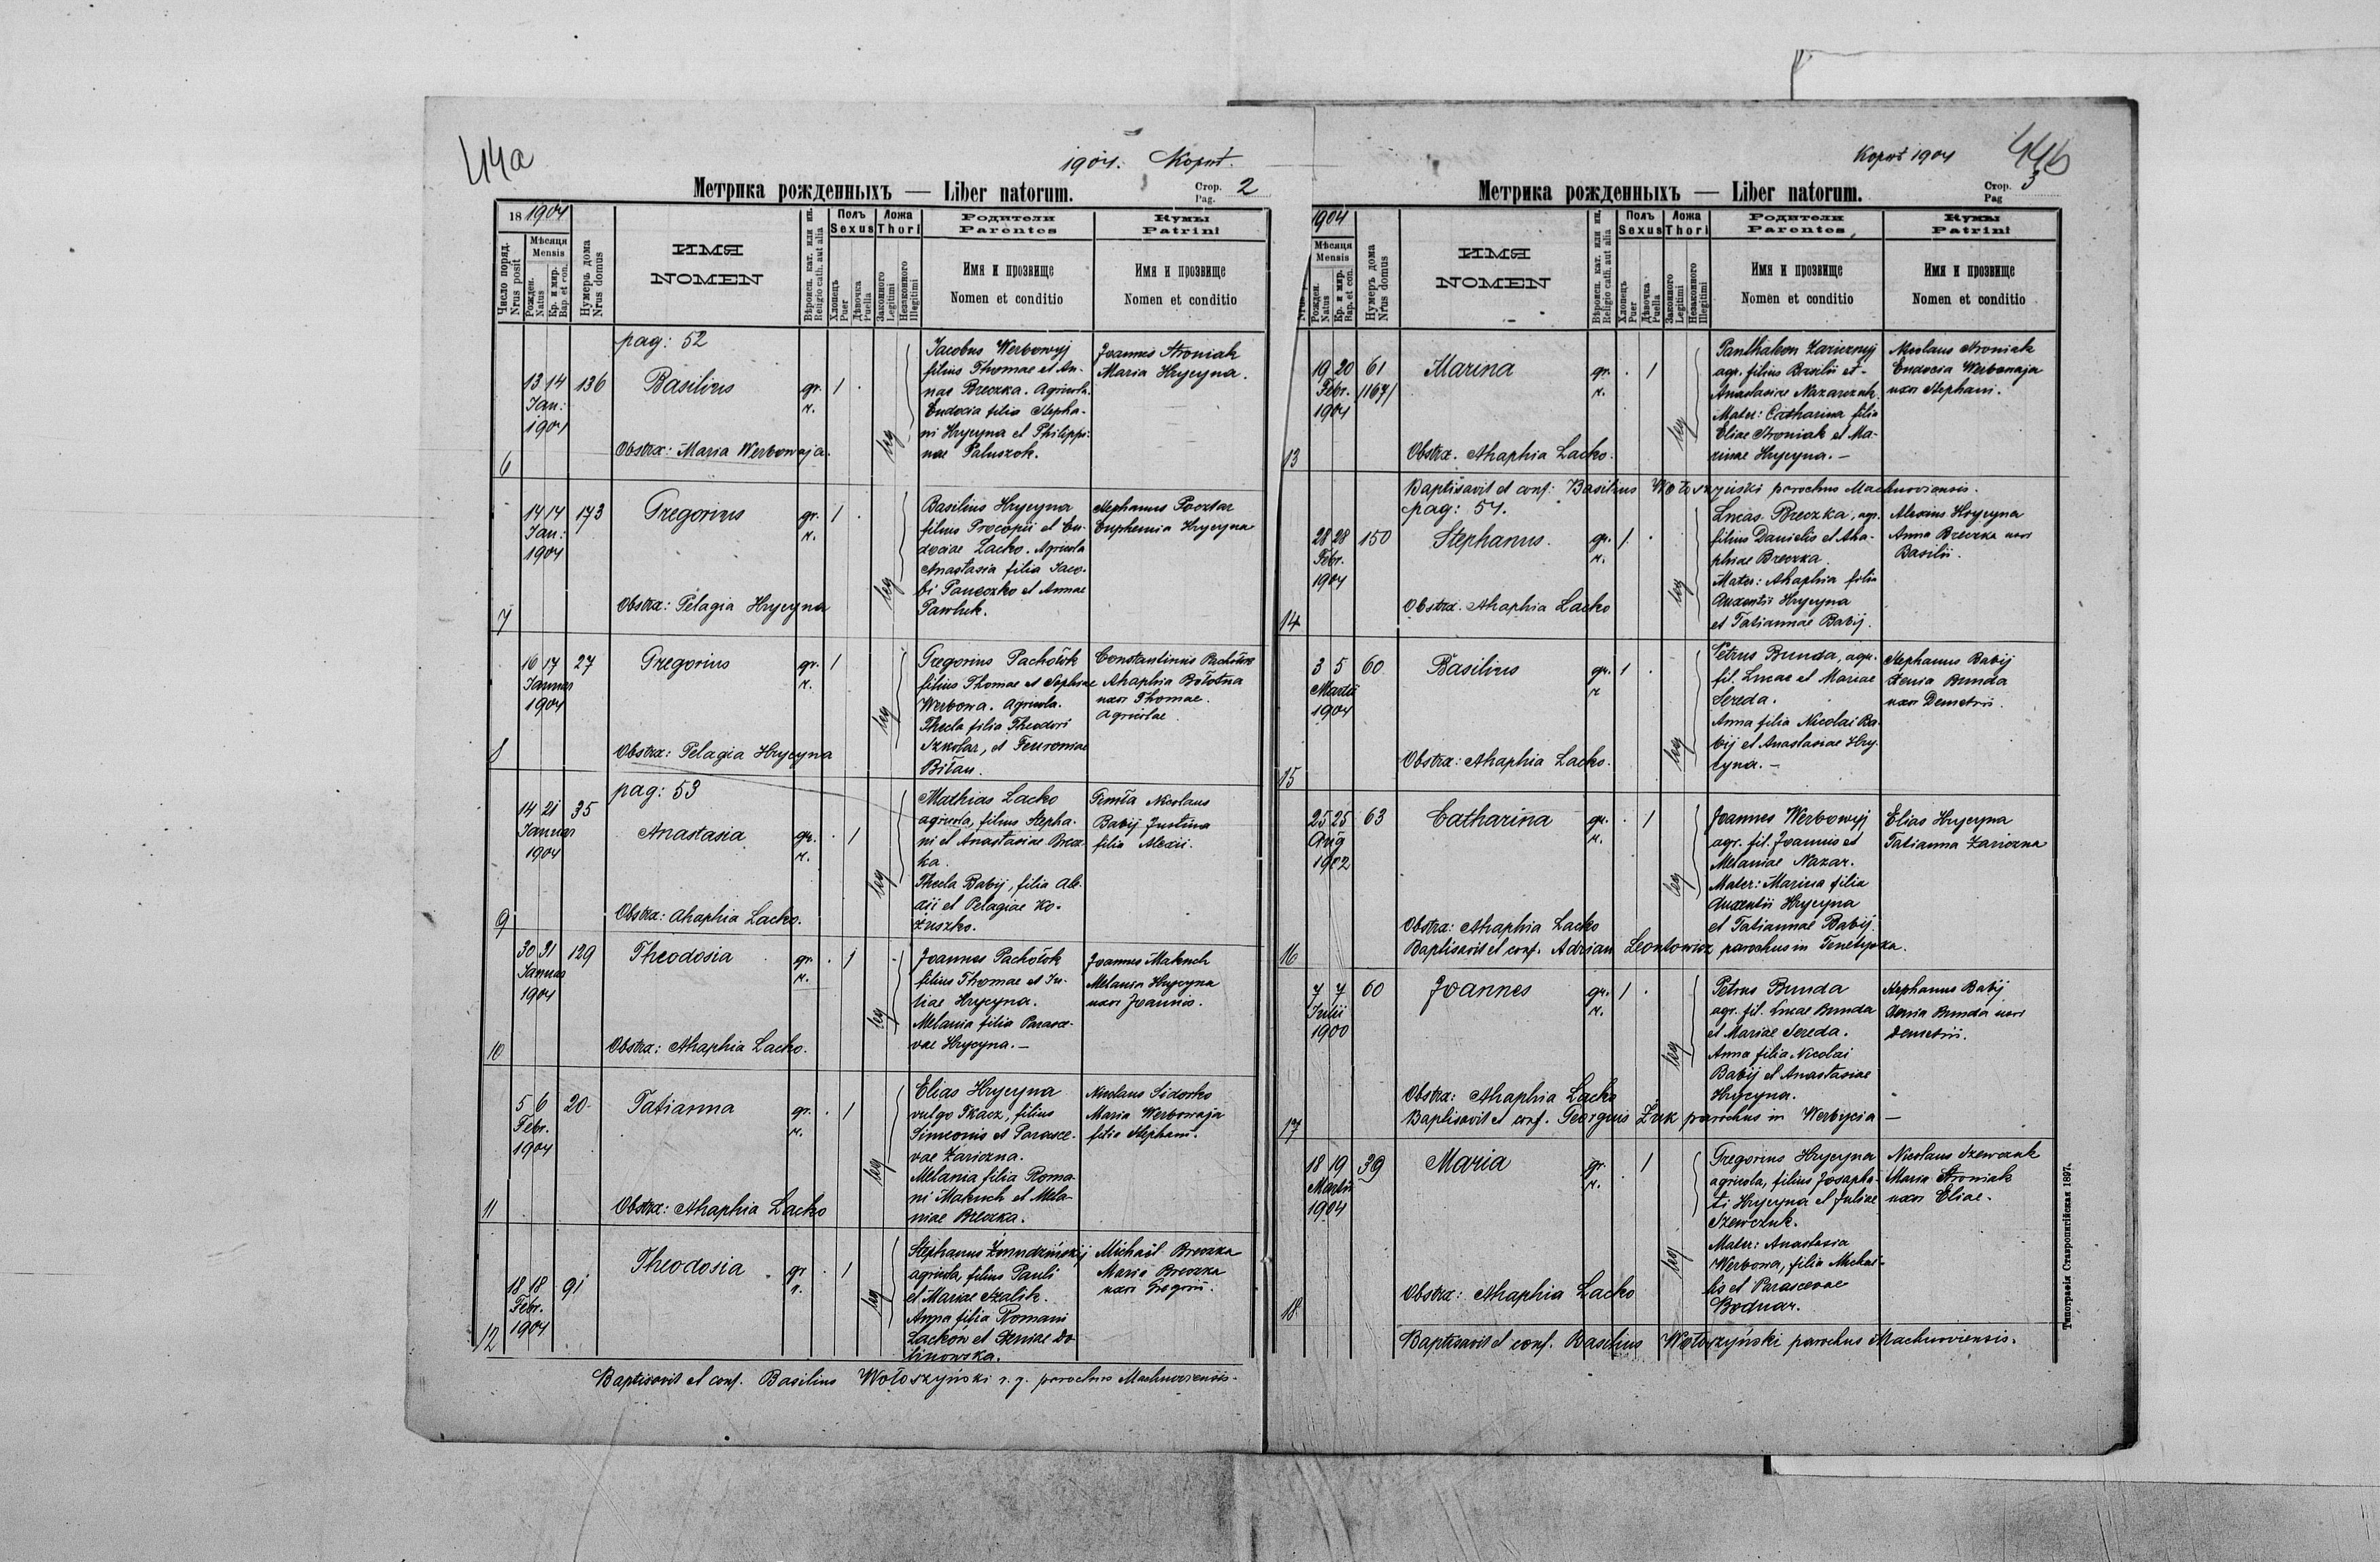 44a
1904. Koport.
Метрика рожденныхъ — Liber natorum.
Стор. Pag. 2
18 1904
Число поряд. Nrus posit
Мѣсяця Mensis
Рожден. Natus
Кр. и мир. Bap. et con.
Нумеръ дома Nrus domus
ИМЯ
NOMEN
Вѣроисп. кат. или ин. Religio cath. aut alia
Полъ Sexus
Хлопецъ Puer
Дѣвочка Puella
Ложа Thori
Законного Legitimi
Незаконного Illegitimi
Родители
Parentes
Имя и прозвище
Nomen et conditio
Кумы
Patrini
Имя и прозвище
Nomen et conditio
pag: 52
6
13 14 Jan: 1904
136
Basilius
gr. r.
1
leg
Jacobus Werbowyj
filius Thomae et An-
nae Breczka. Agricola.
Eudocia filia Stepha-
ni Hrycyna et Philippi-
nae Paluszok.
Joannes Stroniak
Maria Hrycyna.
Obstrx: Maria Werbowaja.
7
14 14 Jan: 1904
173
Gregorius
gr. r.
1
leg
Basilius Hrycyna
filius Procopii et Eu-
dociae Lacko. Agricola
Anastasia filia Jaco-
bi Paneczko et Annae
Pawluk.
Stephanus Pocztar
Euphemia Hrycyna
Obstrx: Pelagia Hrycyna
8
16 17 Januar 1904
27
Gregorius
gr. r.
1
leg
Gregorius Pachołok
filius Thomae et Sophiae
Werbowa. Agricola.
Thecla filia Theodori
Szkolar, et Feuroniae
Biłan.
Constantinus Pachołok
Ahaphia Bołotna
uxor Thomae.
agricolae.
Obstrx: Pelagia Hrycyna
pag: 53
9
14 21 Januar 1904
35
Anastasia
gr. r.
1
leg
Mathias Lacko
agricola, filius Stepha-
ni et Anastasiae Brecz-
ka.
Thecla Babij, filia Ale-
xii et Pelagiae Ko-
żuszko.
Nicolaus
Babij Justina
filia Alexii.
Obstrx: Ahaphia Lacko.
10
30 31 Januar 1904
129
Theodosia
gr. r.
1
leg
Joannes Pachołok
filius Thomae et Ju-
liae Hrycyna.
Melania filia Parasce-
vae Hrycyna. —
Joannes Makuch
Melania Hrycyna
uxor Joannis.
Obstrx: Ahaphia Lacko.
11
5 6 Febr. 1904
20
Tatianna
gr. r.
1
leg
Elias Hrycyna
vulgo Tkacz, filius
Simeonis et Parasce-
vae Zariczna.
Melania filia Roma-
ni Makuch et Mela-
niae Breczka.
Nicolaus Sidorko
Maria Werbowaja
filia Stephani.
Obstrx: Ahaphia Lacko
12
18 18 Febr. 1904
91
Theodosia
gr. r.
1
leg
Stephanus Żmudzińskij
agricola, filius Pauli
et Mariae Szalik.
Anna filia Romani
Lackow et Xeniae Do-
linowska.
Michaïl Breczka
Maria Breczka
uxor Gregorii.
Baptisavit et conf. Basilius Wołoszyński r. g. parochus Machnoviensis.
Koport 1904
44b
Метрика рожденныхъ — Liber natorum.
Стор. Pag 3
1904
Мѣсяця Mensis
Рожден. Natus
Кр. и мир. Bap. et con.
Нумеръ дома Nrus domus
ИМЯ
NOMEN
Вѣроисп. кат. или ин. Religio cath. aut alia
Полъ Sexus
Хлопецъ Puer
Дѣвочка Puella
Ложа Thori
Законного Legitimi
Незаконного Illegitimi
Родители
Parentes
Имя и прозвище
Nomen et conditio
Кумы
Patrini
Имя и прозвище
Nomen et conditio
13
19 20 Febr. 1904
61 /167/
Marina
gr. r.
1
leg
Panthaleon Zaricznyj
agr. filius Basilii et
Anastasiae Nazarczuk.
Mater: Catharina filia
Eliae Stroniak et Ma-
rinae Hrycyna. —
Nicolaus Stroniak
Eudocia Werbowaja
uxor Stephani.
Obstrx. Ahaphia Lacko.
Baptisavit et conf: Basilius Wołoszyński parochus Machnoviensis.
pag: 54.
14
28 28 Febr. 1904
150
Stephanus.
gr. r.
1
leg
Lucas Breczka, agr.
filius Danielis et Aha-
phiae Breczka.
Mater: Ahaphia filia
Auxentii Hrycyna
et Tatiannae Babij.
Alexius Hrycyna
Anna Breczka uxor
Basilii.
Obstrx. Ahaphia Lacko
15
3 5 Martii 1904
60
Basilius
gr. r
1
leg
Petrus Bunda, agr.
fil. Lucae et Mariae
Sereda.
Anna filia Nicolai Ba-
bij et Anastasiae Hry-
cyna. —
Stephanus Babij
Xenia Bunda
uxor Demetrii.
Obstrx: Ahaphia Lacko.
16
25 25 Aug 1902
63
Catharina
gr. r.
1
leg
Joannes Werbowyj
agr. fil. Joannis et
Melaniae Nazar.
Mater: Marina filia
Auxentii Hrycyna
et Tatiannae Babij.
Elias Hrycyna
Tatianna Zariczna
Obstrx: Ahaphia Lacko
Baptisavit et conf. Adrian Leontowicz parochus in Tenetyska.
17
7 7 Julii 1900
60
Joannes
gr. r.
1
leg
Petrus Bunda
agr. fil. Lucae Bunda
et Mariae Sereda.
Anna filia Nicolai
Babij et Anastasiae
Hrycyna.
Stephanus Babij
Xenia Bunda uxor
Demetrii.
Obstrx: Ahaphia Lacko
Baptisavit et conf. Georgius Żuk parochus in Werbycia —
18
18 19 Martii 1904
39
Maria
gr. r.
1
leg
Gregorius Hrycyna
agricola, filius Josapha-
ti Hrycyna et Juliae
Szewczuk.
Mater: Anastasia
Werbowa, filia Michae-
lis et Parascevae
Bodnar.
Nicolaus Szewczuk
Maria Stroniak
uxor Eliae.
Obstrx: Ahaphia Lacko
Baptisavit et conf. Basilius Wołoszyński parochus Machnoviensis.
Типографія Ставропигійская 1897.